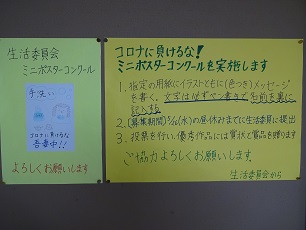 生活委員会
ミニポスターコンクール
手洗い
コロナに負けるな
吾妻中!!
よろしくお願いします
コロナに負けるな!
ミニポスターコンクールを実施します
1. 指定の用紙にイラストともに(色つき)メッセージ
を書く。文字は必ずペン書きで 名前を裏に
記入する
2.(募集期間) (水)の昼休みまでに生活委員に提出
3. 投票を行い、優秀作品には賞状と賞品を贈ります
ご協力よろしくお願いします。
生活委員会から